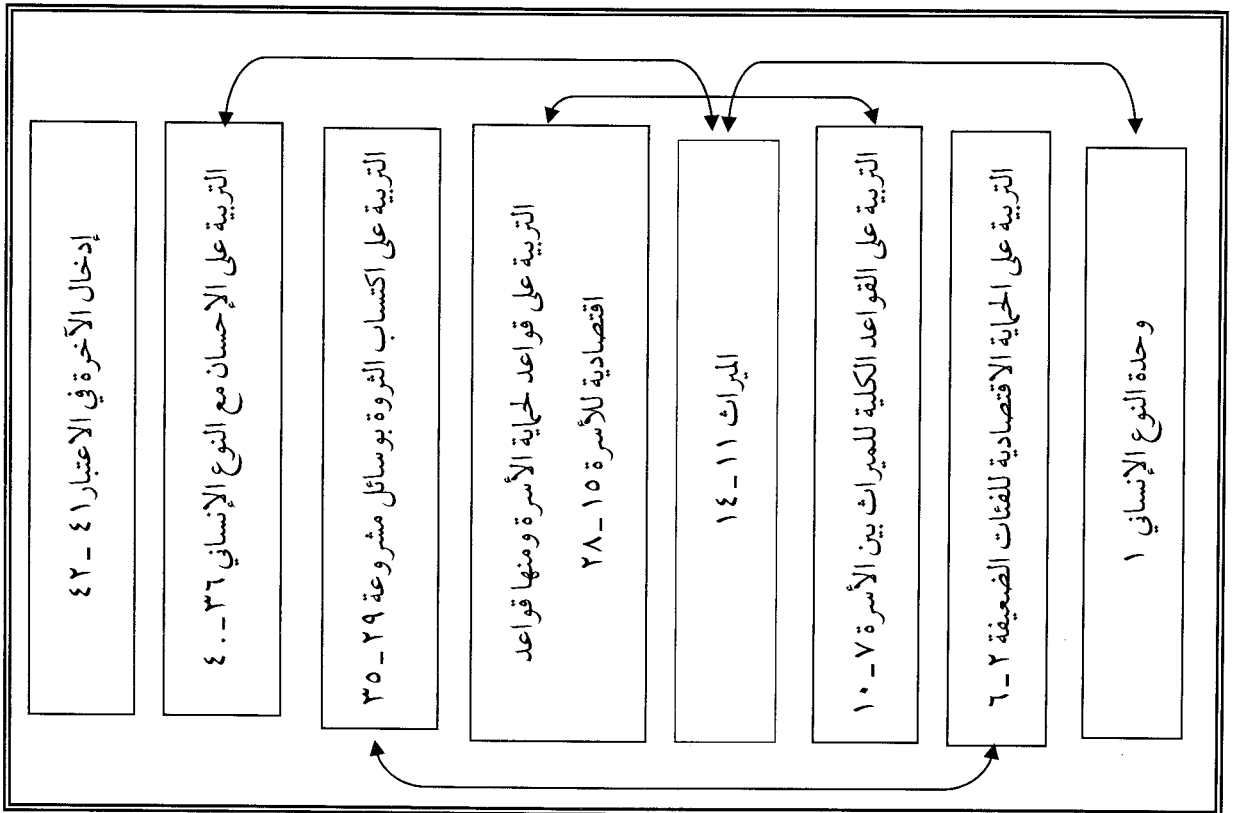 وحدة النوع الإنساني ١
التربية على الحماية الاقتصادية للفئات الضعيفة ٢ـ٦
التربية على القواعد الكلية للميراث بين الأسرة ٧ـ١٠
الميراث ١١ـ١٤
التربية على قواعد لحماية الأسرة ومنها قواعد
اقتصادية للأسرة ١٥ـ٢٨
التربية على اكتساب الثروة بوسائل مشروعة ٢٩ـ٣٥
التربية على الإحسان مع النوع الإنساني ٣٦ـ٤٠
إدخال الآخرة في الاعتبار ٤١ـ٤٢